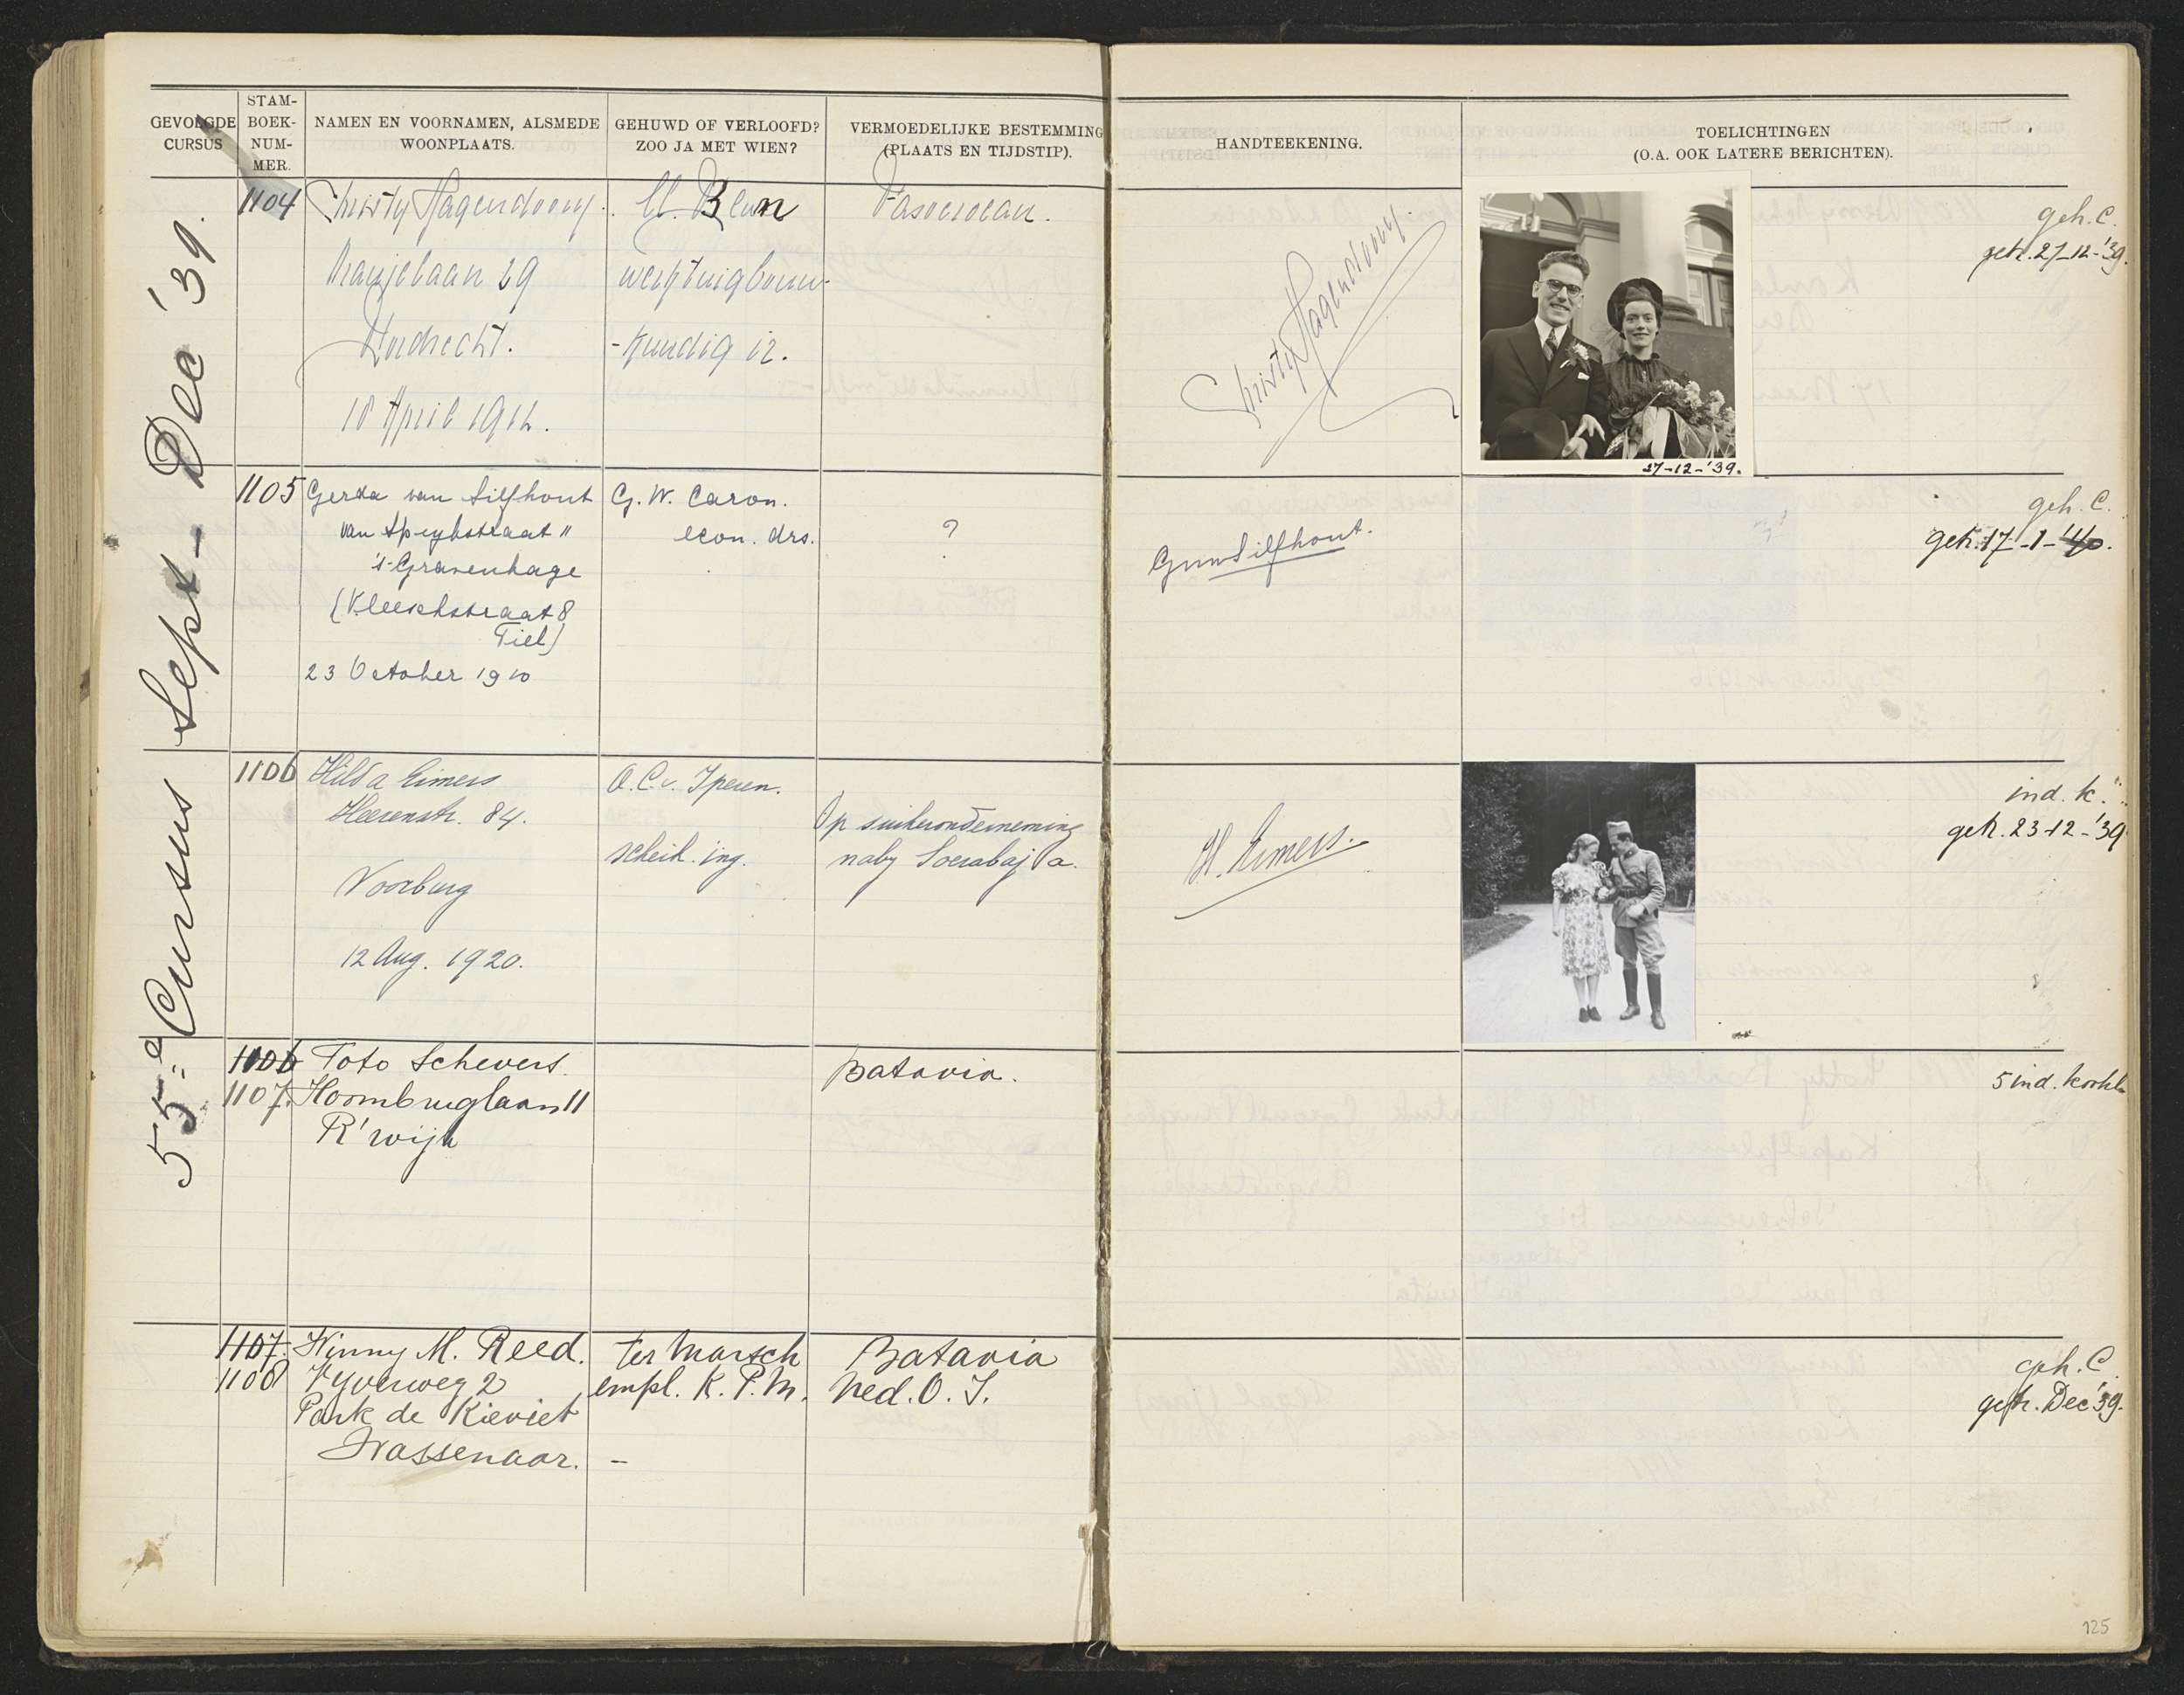 GEVOLGDE CURSUS
STAM-BOEK-NUM-MER.
NAMEN EN VOORNAMEN, ALSMEDE WOONPLAATS.
GEHUWD OF VERLOOFD? ZOO JA MET WIEN?
VERMOEDELIJKE BESTEMMING (PLAATS EN TIJDSTIP).
HANDTEEKENING.
TOELICHTINGEN
(O.A. OOK LATERE BERICHTEN).
55e Cursus Sept - Dec '39.
1104
Christy Hagendoorn.
Oranjelaan 29
Dordrecht.
18 April 1912.
Werktuigbouw-
-kundig ir.
Pasoeroean.
Christy Hagendoorn.
27-12-'39.
geh. C.
getr. 27-12-'39.
1105
Gerda van Silfhout
van Speykstraat 11
's-Gravenhage
(Kleeschstraat 8
Tiel)
23 October 1910
G. W. Caron.
econ. drs.
?
GvanSilfhout.
geh. C.
getr. 17-1-'40.
1106
Hilda Eimers
Heerenstr. 84.
Voorburg
12 Aug. 1920.
O. C. v. Iperen.
scheik. ing.
Op suikeronderneming
naby Soerabaja.
H. Eimers.
ind. k.
getr. 23-12-'39
1106
1107.
Toto Schevers.
Hoornbruglaan 11
R'wijk
Batavia.
5 ind. kookl
1107.
1108
Winny M. Reed.
Vyverweg 2
Park de Kieviet
Wassenaar.
ter Marsch
empl. K. P. M.
-
Batavia
Ned. O. I.
geh. C.
getr. Dec '39.
125